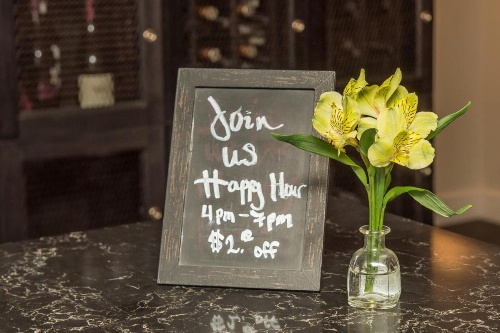 Join
us
Happy Hour
4pm-7pm
$2.00 off